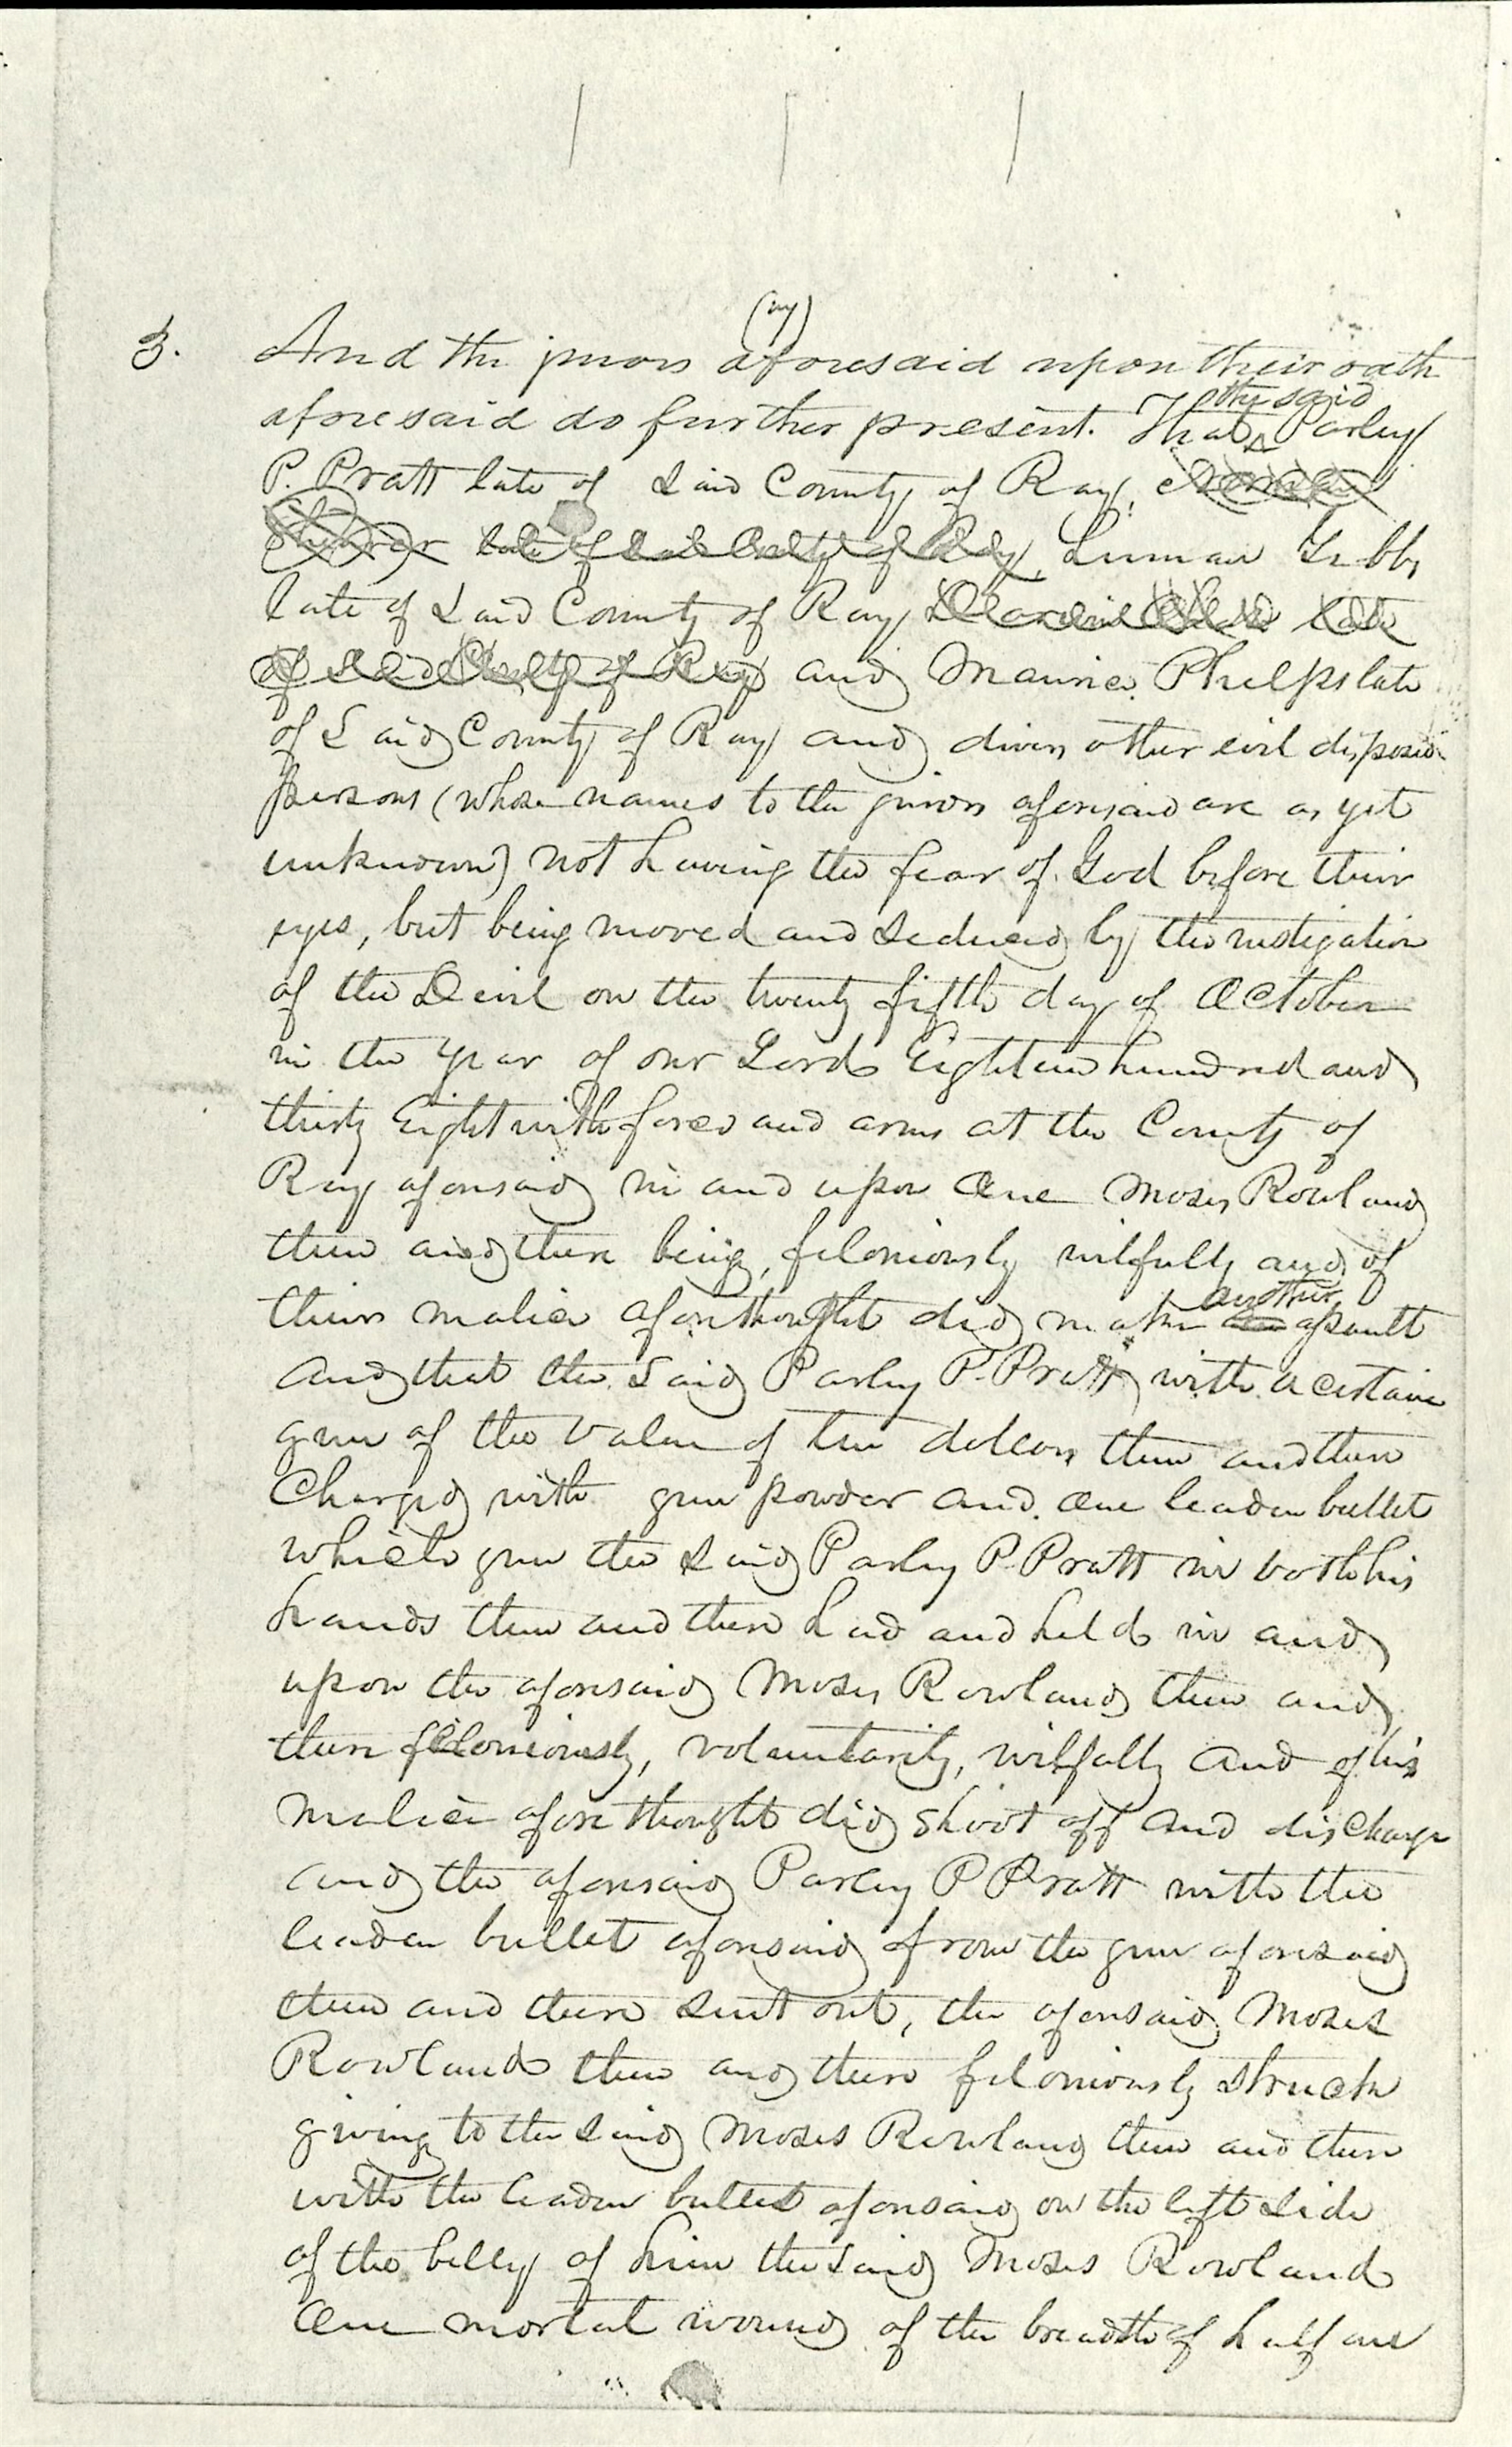 (ay)
3. And the jurors aforesaid upon their oath
the said
aforesaid do further present. That Parley
P. Pratt late of Said County of Ray,
Shearer late of said County of Ray, Luman Gibbs
late of Said County of Ray Darwin Chase late
of Said County of Ray and Maurice Phelps late
of Said County of Ray and divers other evil disposed
persons (whose names to the jurors aforesaid are as yet
unknown) not having the fear of God before their
eyes, but being moved and Seduced by the instigation
of the Devil on the twenty fifth day of October
in the Year of our Lord Eighteen hundred and
thirty Eight with force and arms at the County of
Ray aforesaid in and upon One Moses Rowland
then and there being, feloniously wilfully and of
another
their malice aforethought did make an assault
and that the Said Parley P. Pratt with a certain
gun of the value of ten dollars then and there
Charged with gun powder and One leaden bullet
which gun the Said Parley P. Pratt in both his
hands then and there had and held in and
upon the aforesaid Moses Rowland then and
there feloniously, voluntarily, wilfully and of his
malice afore thought did shoot off and discharge
and the aforesaid Parley P Pratt with the
leaden bullet aforesaid from the gun aforesaid
then and there Sent out, the aforesaid Moses
Rowland then and there feloniously Struck
giving to the Said Moses Rowland then and there
with the leaden bullet aforesaid on the left Side
of the belly of him the Said Moses Rowland
One mortal wound of the breadth of half an